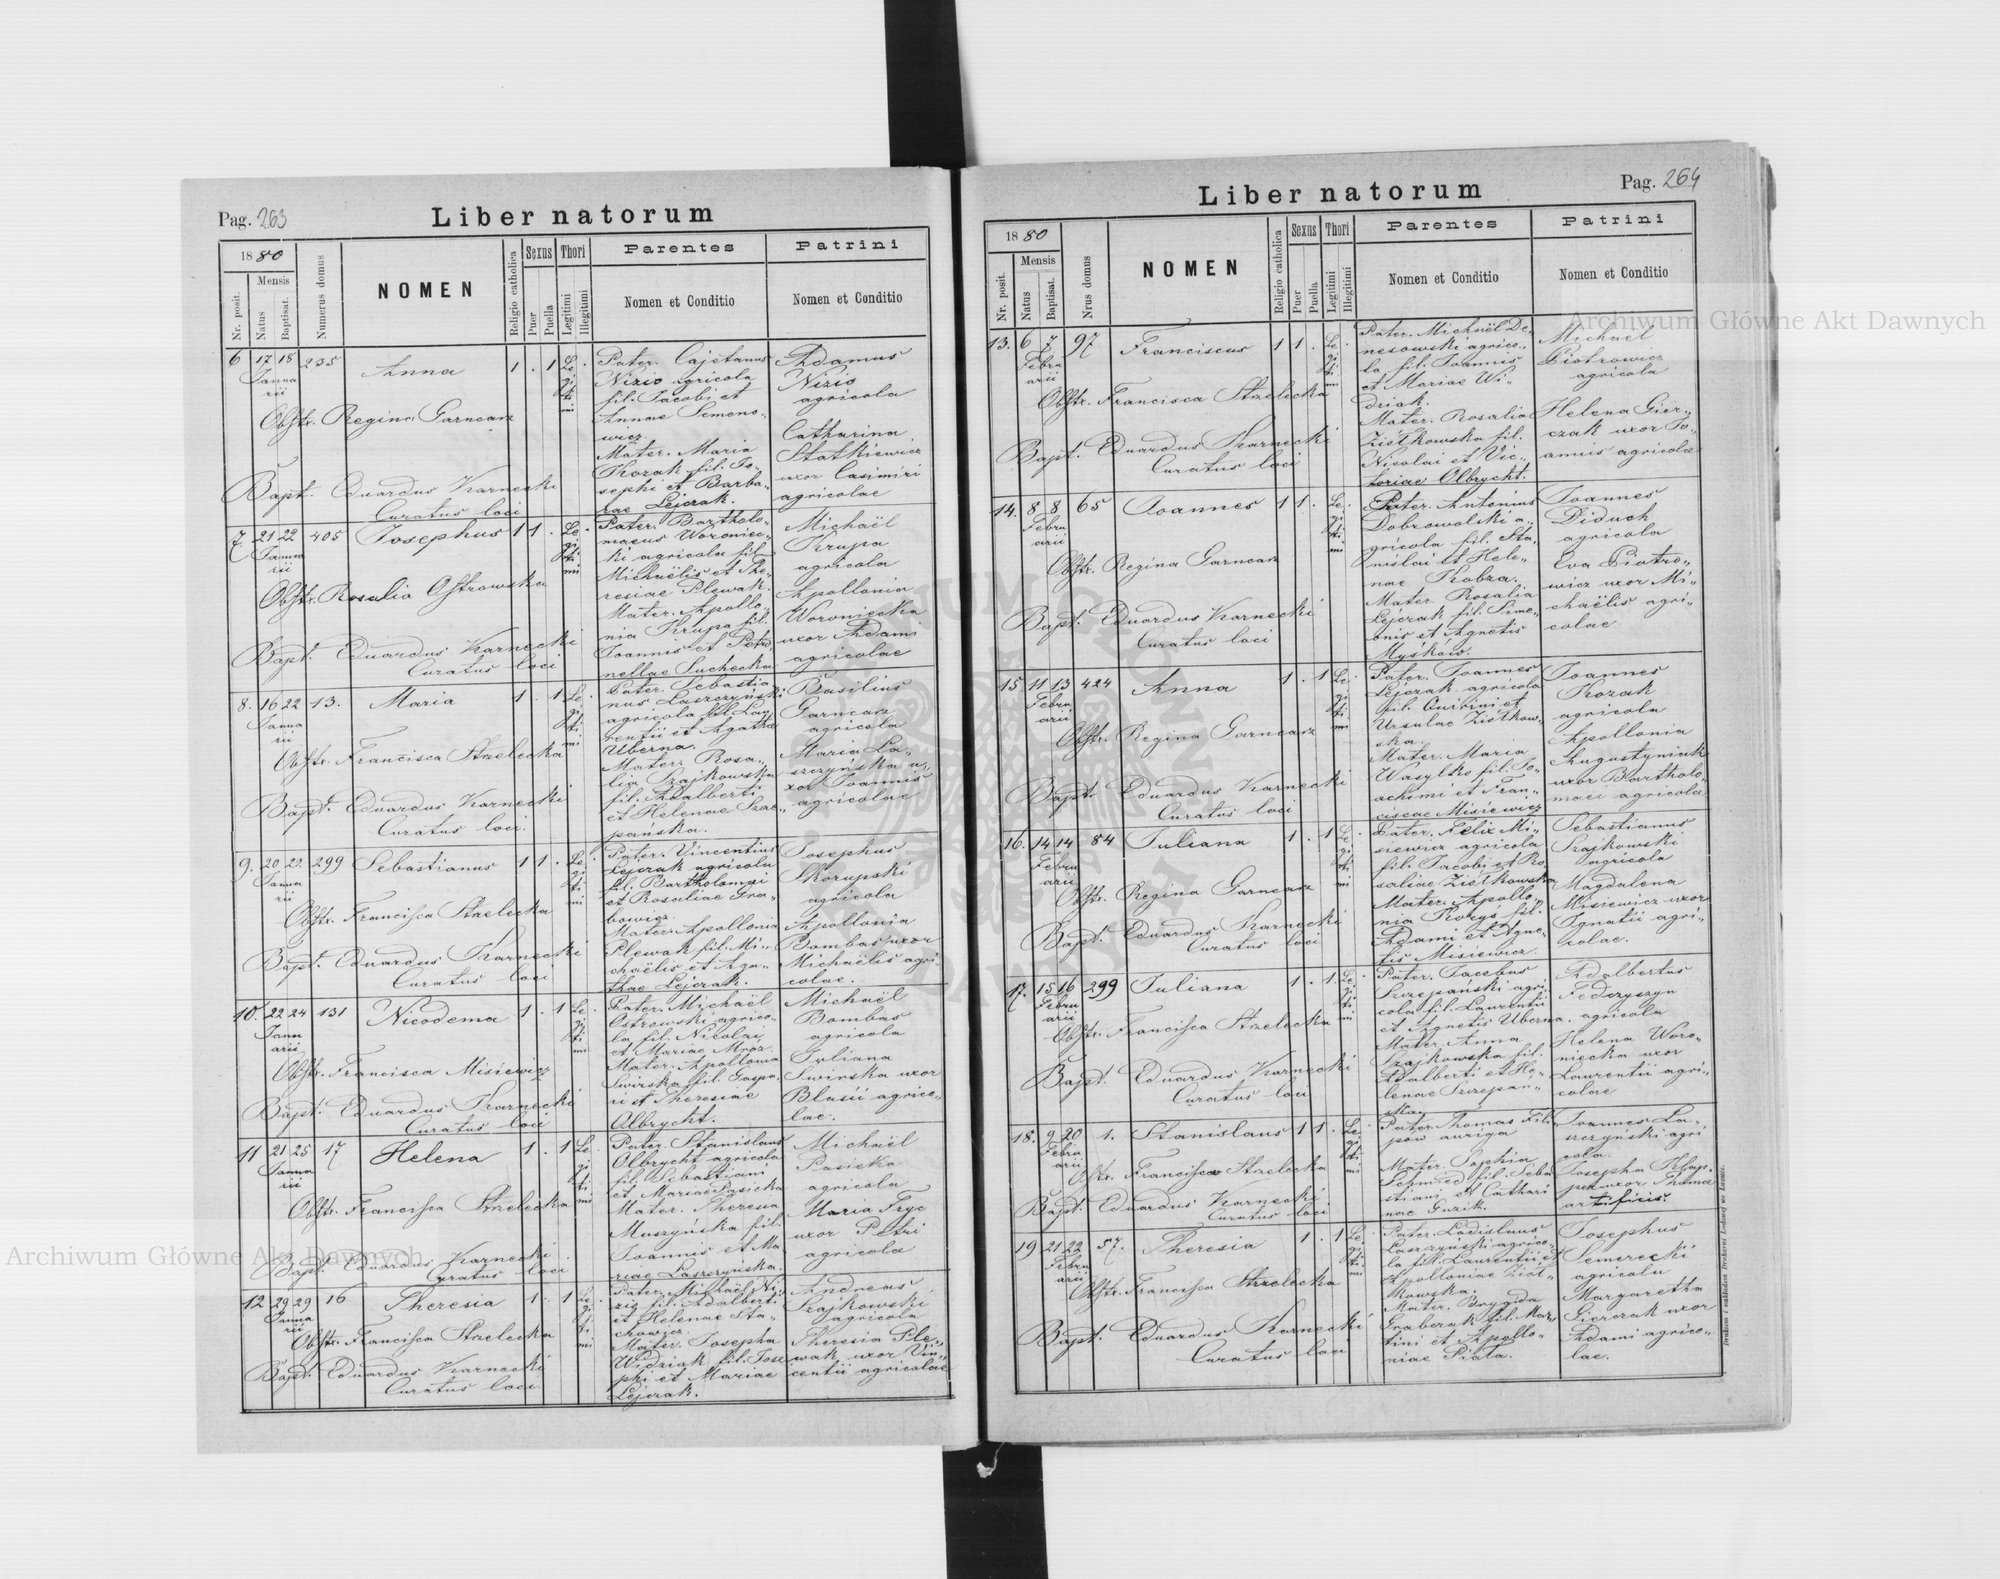 Pag. 263
Liber natorum
1880
Nr. posit.
Mensis
Natus
Baptisat.
Numerus domus
NOMEN
Religio catholica
Sexus
Puer
Puella
Thori
Legitimi
Illegitimi
Parentes
Nomen et Conditio
Patrini
Nomen et Conditio
6 17 18 235 Anna 1 . 1 Le-
Janua
rii
gi
ti
mi
Obstr. Regina Garncarz
Bapt. Eduardus Karnecki
Curatus loci
Pater. Cajetanus
Nizio agricola
fil. Jacobi et
Annae Semeno-
wicz.
Mater. Maria
Kozak fil. Jo-
sephi et Barba-
rae Lejczak.
Adamus
Nizio
agricola
Catharina
Statkiewicz
uxor Casimiri
agricolae
7. 21 22 405 Josephus 1 1 . Le
Janua
rii
gi
ti
mi
Obstr. Rosalia Ostrowska
Bapt. Eduardus Karnecki
Curatus loci
Pater. Bartholo-
maeus Woroniec-
ki agricola fil.
Michaëlis et The-
resiae Plewak.
Mater. Apollo-
nia Krupa fil.
Joannis et Petro
nellae Suchecka
Michaël
Krupa
agricola
Apollonia
Woroniecka
uxor Adami
agricolae
8. 16 22 13. Maria 1 . 1 Le
Janua
rii
gi
ti
mi
Obstr. Francisca Strzelecka
Bapt. Eduardus Karnecki
Curatus loci.
Pater. Sebastia
nus Laszczyński
agricola fil. Lau
rentii et Agathae
Uberna.
Mater. Rosa-
lia Szajkowska
fil. Adalberti
et Helenae Szcze-
pańska.
Basilius
Garncarz
agricola
Maria La-
szczyńska u-
xor Joannis
agricolae
9. 20 22 299 Sebastianus 1 1 . Le
Janua
rii
gi
ti
mi
Obstr. Francisca Strzelecka
Bapt. Eduardus Karnecki
Curatus loci
Pater. Vincentius
Lejczak agricola
fil. Bartholomaei
et Rosaliae Gra-
bowicz.
Mater. Apollonia
Plewak fil. Mi-
chaëlis et Aga-
thae Lejczak.
Josephus
Skorupski
agricola
Apollonia
Bombas uxor
Michaëlis agri
colae.
10. 22 24 131 Nicodema 1 . 1 Le
Janu
arii
gi
ti
mi
Obstr. Francisca Misiewicz
Bapt. Eduardus Karnecki
Curatus loci
Pater. Michaël
Ostrowski agrico-
la fil. Nicolai
et Mariae Mróz.
Mater. Apollonia
Swirska fil. Gaspa-
ri et Theresiae
Olbrycht.
Michaël
Bombas
agricola
Juliana
Swirska uxor
Blasii agrico-
lae.
11 21 25 17 Helena 1 . 1 Le
Janua
rii
gi
ti
mi
Obstr. Francisca Strzelecka
Bapt. Eduardus Karnecki
Curatus loci
Pater. Stanislaus
Olbrycht agricola
fil. Sebastiani
et Mariae Pasieka
Mater. Theresia
Muszyńska fil.
Joannis et Ma
riae Laszczyńska.
Michaël
Pasieka
agricola
Maria Fryc
uxor Petri
agricolae
12 29 29 16 Theresia 1 . 1 Le
Janua
rii
gi
ti
mi
Obstr. Francisca Strzelecka
Bapt. Eduardus Karnecki
Curatus loci
Pater. Michaël Ni
zio fil. Adalberti
et Helenae Sta-
chowicz.
Mater. Josepha
Widziak fil. Jose
phi et Mariae
Lejczak.
Andreas
Szajkowski
agricola
Theresia Ple-
wak uxor Vin-
centii agricolae
Pag. 264
Liber natorum
1880
Nr. posit.
Mensis
Natus
Baptisat.
Nrus domus
NOMEN
Religio catholica
Sexus
Puer
Puella
Thori
Legitimi
Illegitimi
Parentes
Nomen et Conditio
Patrini
Nomen et Conditio
13. 6 7 97 Franciscus 1 1 . Le
Febru
arii
gi
ti
mi
Obstr. Francisca Strzelecka
Bapt. Eduardus Karnecki
Curatus loci
Pater. Michaël De-
nesowski agrico-
la fil. Joannis
et Mariae Wi-
dziak.
Mater. Rosalia
Ziółkowska fil.
Nicolai et Vic-
toriae Olbrycht.
Michael
Piotrowicz
agricola
Helena Gier-
czak uxor Jo-
annis agricolae
14. 8 8 65 Joannes 1 1 . Le
Febru
arii
gi
ti
mi
Obstr. Regina Garncarz
Bapt. Eduardus Karnecki
Curatus loci
Pater. Antonius
Dobrowolski a-
gricola fil. Sta-
nislai et Hele-
nae Kobza.
Mater Rosalia
Lejczak fil. Sime-
onis et Agnetis
Myśków.
Joannes
Diduch
agricola
Eva Piotro-
wicz uxor Mi-
chaëlis agri-
colae
15. 11 13 424 Anna 1 . 1 Le
Febru
arii
gi
ti
mi
Obstr. Regina Garncarz
Bapt. Eduardus Karnecki
Curatus loci
Pater. Joannes
Lejczak agricola
fil. Quirini et
Ursulae Ziółkow-
ska.
Mater. Maria
Wasylko fil. Jo-
achimi et Fran-
ciscae Misiewicz
Joannes
Kozak
agricola
Apollonia
Augustyniak
uxor Bartholo-
maei agricolae
16. 14 14 84 Juliana 1 . 1 Le
Febru
arii
gi
ti
mi
Obstr. Regina Garncarz
Bapt. Eduardus Karnecki
Curatus loci
Pater. Felix Mi-
siewicz agricola
fil. Jacobi et Ro
saliae Ziółkowska
Mater. Apollo-
nia Rozyś fil.
Adami et Agne-
tis Misiewicz.
Sebastianus
Szajkowski
agricola
Magdalena
Misiewicz uxor
Ignatii agri-
colae.
17. 15 16 299 Juliana 1 . 1 Le
Febru
arii
gi
ti
mi
Obstr. Francisca Strzelecka
Bapt. Eduardus Karnecki
Curatus loci
Pater. Jacobus
Szczepański agri
cola fil. Laurentii
et Agnetis Uberna.
Mater. Anna
Szajkowska fil.
Adalberti et He-
lenae Szczepań-
ska.
Adalbertus
Fedczyszyn
agricola
Helena Woro-
niecka uxor
Laurentii agri-
colae
18. 9 20 1. Stanislaus 1 1 . Le
Febru
arii
gi
ti
mi
Obstr. Francisca Strzelecka
Bapt. Eduardus Karnecki
Curatus loci
Pater. Thomas Fili-
pów auriga
Mater. Sophia
Schmied fil. Seba
stiani et Cathari
nae Guzik.
Joannes La-
szczyński agri
cola.
uxor Thomae
artificis
19 21 22 57. Theresia 1 . 1 Le
Febru
arii
gi
ti
mi
Obstr. Francisca Strzelecka
Bapt. Eduardus Karnecki
Curatus loci
Pater. Ladislaus
Laszczyński agrico-
la fil. Laurentii et
Apolloniae Ziół-
kowska.
Mater. Brygida
Graberak fil. Mar-
tini et Apollo-
niae Piata.
Josephus
Semerecki
agricola
Margaretha
Gierczak uxor
Adami agrico-
lae.
Archiwum Główne Akt Dawnych
Archiwum Główne Akt Dawnych